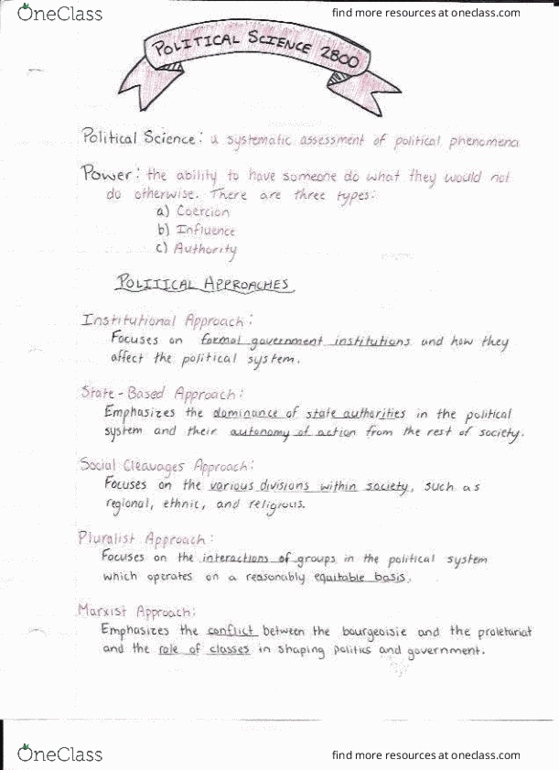 OneClass
find more resources at oneclass.com
POLITICAL SCIENCE 2800
Political Science: a systematic assessment of political phenomena
Power: the ability to have someone do what they would not
do otherwise. There are three types:
a) Coercion
b) Influence
c) Authority
POLITICAL APPROACHES
Institutional Approach:
Focuses on formal government institutions and how they
affect the political system.
State-Based Approach:
Emphasizes the dominance of state authorities in the political
system and their autonomy of action from the rest of society.
Social Cleavages Approach:
Focuses on the various divisions within society, such as
regional, ethnic, and religious.
Pluralist Approach:
Focuses on the interactions of groups in the political system
which operates on a reasonably equitable basis.
Marxist Approach:
Emphasizes the conflict between the bourgeoisie and the proletariat
and the role of classes in shaping politics and government.
OneClass
find more resources at oneclass.com